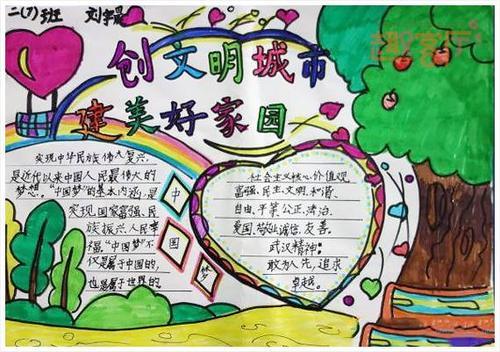 二(7)班 刘宇晨
创文明城市
建美好家园
实现中华民族伟大复兴,
是近代以来中国人民最伟大的
梦想。“中国梦”的基本内涵是
实现国家富强、民
族振兴、人民幸
福。“中国梦”不
仅是属于中国的,
也是属于世界的
中
国
梦
社会主义核心价值观
富强、民主、文明、和谐、
自由、平等、公正、法治、
爱国、敬业、诚信、友善。
武汉精神:
敢为人先,追求
卓越。